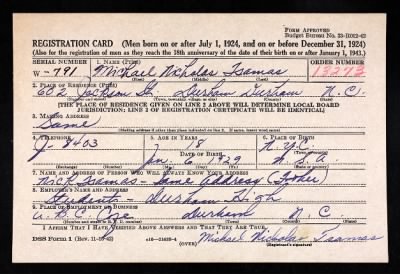 FORM APPROVED
Budget Bureau No. 33-R012-42
REGISTRATION CARD (Men born on or after July 1, 1924, and on or before December 31, 1924)
(Also for the registration of men as they reach the 18th anniversary of the date of their birth on or after January 1, 1943.)
SERIAL NUMBER 1. NAME (Print) ORDER NUMBER
W-791 Michael Nicholas Tsamas
2. PLACE OF RESIDENCE (Print)
602 Jackson St. Durham Durham N. C.
[THE PLACE OF RESIDENCE GIVEN ON LINE 2 ABOVE WILL DETERMINE LOCAL BOARD
JURISDICTION; LINE 2 OF REGISTRATION CERTIFICATE WILL BE IDENTICAL]
3. MAILING ADDRESS
Same
[Mailing address if other than place indicated on line 2. If same, insert word same]
4. TELEPHONE 5. AGE IN YEARS 6. PLACE OF BIRTH
J-8403 18 N.Y.C.
DATE OF BIRTH
U.S.A.
(Exchange) (Number) (Mo.) (Day) (Yr.) (State or country)
7. NAME AND ADDRESS OF PERSON WHO WILL ALWAYS KNOW YOUR ADDRESS
Nick Tsamas - Same address (Father)
8. EMPLOYER'S NAME AND ADDRESS
Student - Durham High
9. PLACE OF EMPLOYMENT OR BUSINESS
Durham N. C.
I AFFIRM THAT I HAVE VERIFIED ABOVE ANSWERS AND THAT THEY ARE TRUE.
DSS Form 1 (OVER) Michael Nicholas Tsamas
(Registrant's signature)